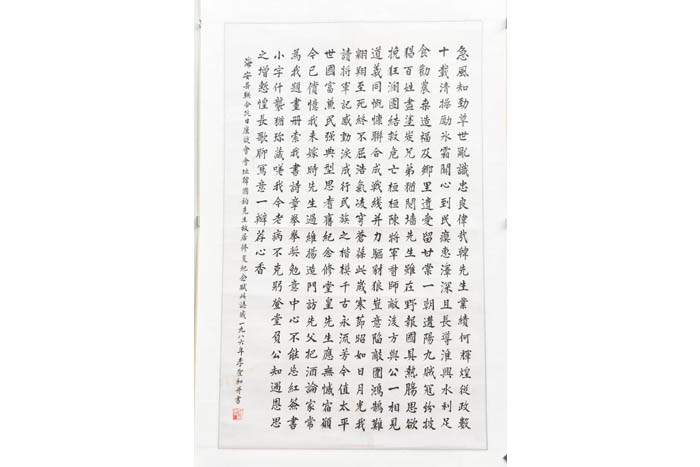 急風知勁草世亂識忠良偉哉韓先生業績何輝煌從政數
十載清操勵冰霜關心到民瘼惠澤深且長導淮興水利足
食勸農桑造福及鄉里遺愛留甘棠一朝遘陽九賊寇紛披
猖百姓盡塗炭兄弟猶鬩墻先生雖在野報國具熱腸思欲
挽狂瀾團結救危亡桓桓陳將軍督師敵後方與公一相見
道義同慨慷聯合成戰綫并力驅豺狼豈意陷敵圍鴻鵠難
翱翔至死終不屈浩氣凌穹蒼葆此歲寒節昭如日月光我
請將軍記感動淚成行民族之楷模千古永流芳今值太平
世國富兼民强典型思耆舊紀念修堂皇先生應無憾宿願
今已償憶我未嫁時先生過維揚造門訪先父把酒論家常
為我題畫册索我書詩章拳拳奬勉意中心不能忘紅箋書
小字什襲猶珍藏嗟我今老病不克躬登堂負公知遇恩思
之增慙惶長歌聊寫意一瓣荐心香
海安縣聯合抗日座談會會址韓國鈞先生故居修复紀念賦此誌感一九八六年李聖和并書